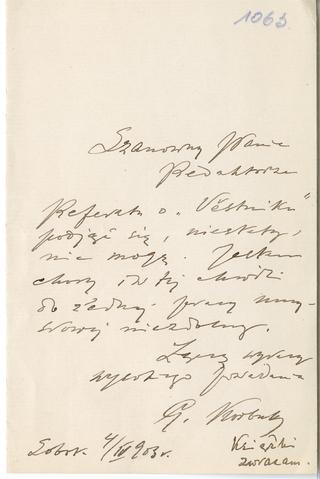 1063.
Szanowny Panie
Redaktorze
Referatu o „Věstniku"
podjąć się, niestety,
nie mogę. Jestem
chory i w tej chwili
do żadnej pracy umy-
słowej niezdolny.
Łączę wyrazy
wysokiego poważania
G. Korbut
Sobota 4/IV 903 r.
Książki
zwracam.